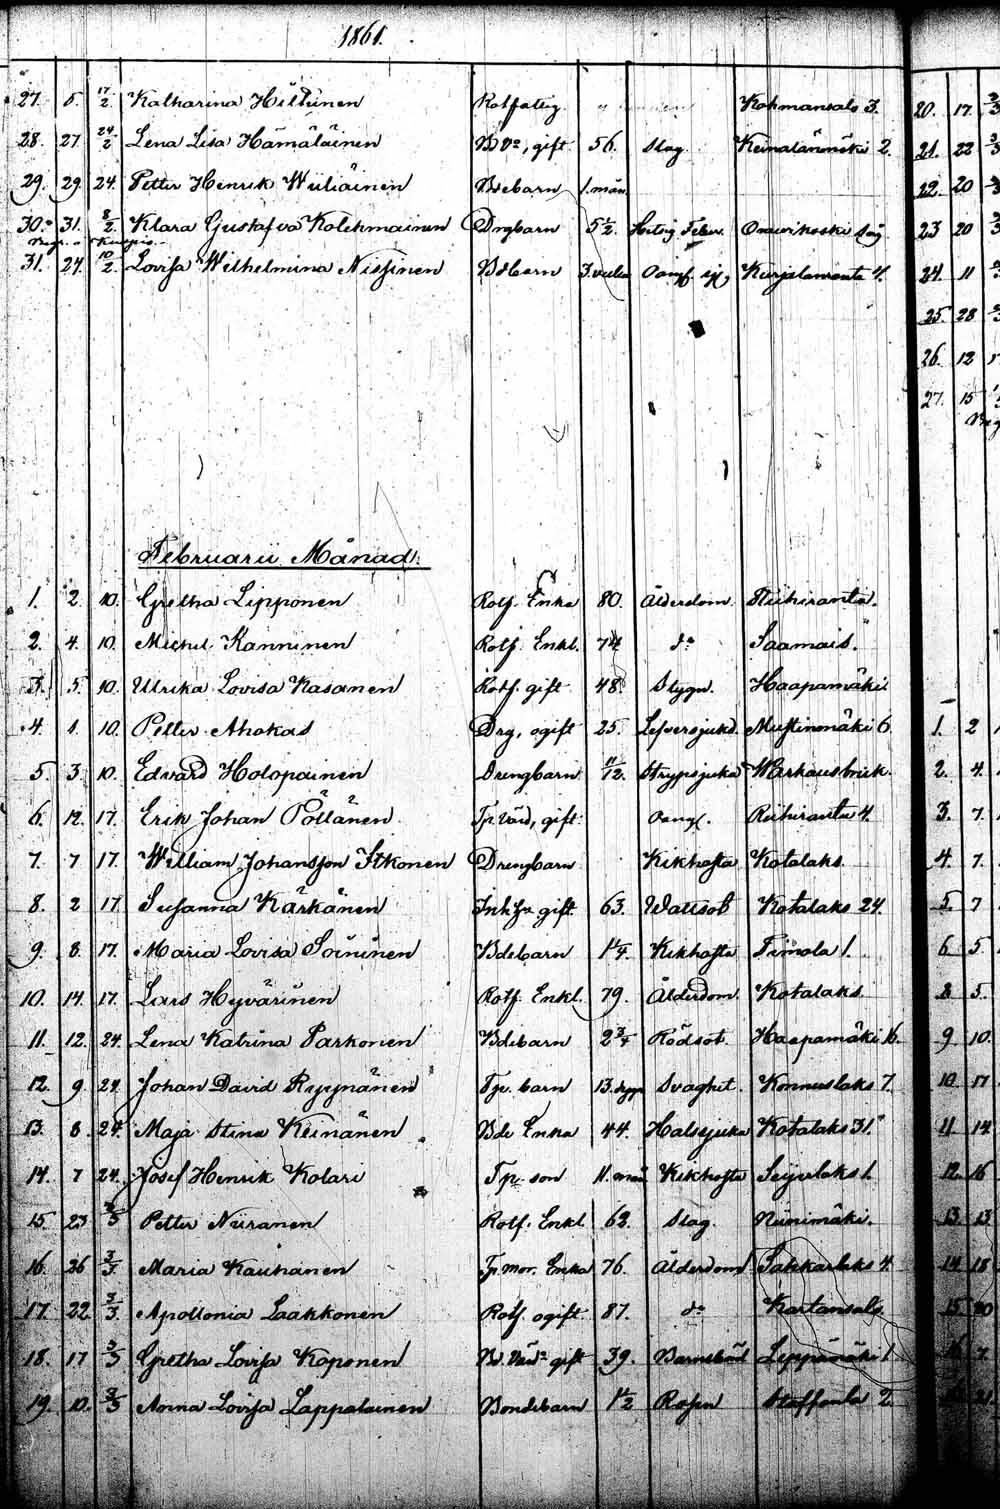 1861.
27. 5. 17/2 Katharina Hiltunen Rotfattig Kohmansalo 3.
28. 27. 24/2 Lena Lisa Hämäläinen gift 56. Slag 2.
29. 29. 24. Petter Henrik Wiiliäinen Bdebarn 1. mån.
30. 31. 8/2 Klara Gustafva Kolehmainen Drgbarn 5 1/2. Hetsig Feber.
31. 24. 10/2 Lovisa Wilhelmina Nissinen Bdbarn 3. veckor Kurjalaranta 4.
Februarii Månad.
1. 2. 10. Gretha Lipponen Rotf. Enka 80. Ålderdom. Riihiranta.
2. 4. 10. Michel Kanninen Rotf. Enkl. 74 do Saamais.
3. 5. 10. Ulrika Lovisa Kasanen Rotf. gift 48. Stygn. Haapamäki
4. 1. 10. Petter Ahokas Drg, ogift 25. Lefversjukd. Mustinmäki 6
5. 3. 10. Edvard Holopainen Drengbarn 11/12. Strypsjuka Warkausbruk.
6. 12. 17. Erik Johan Pöllänen gift. Riihiranta 4.
7. 7 17. William Johansson Itkonen Drengbarn Kikhosta Kotalaks
8. 2 17 Susanna Kärkänen gift. 63. Wattsot Kotalaks 24.
9. 8. 17. Maria Lovisa Soininen Bdebarn 1 1/4. Kikhosta Timola 1.
10. 14. 17. Lars Hyvärinen Rotf. Enkl. 79. Ålderdom. Kotalaks
11. 12. 24. Lena Katrina Parkonen Bdebarn 2 3/4 Rödsot. Haapamäki 16.
12. 9. 24. Johan David Ryynänen Tp. barn 13. dygn Svaghet. Konnuslaks 7.
13. 8. 24. Maja Stina Keinänen Bde Enka 44. Halssjuka Kotalaks 31.
14. 7 24. Josef Henrik Kolari Tp. son 11. mån Kikhosta 1.
15. 23 3/3 Petter Niiranen Rotf. Enkl. 62. Slag. Niinimäki.
16. 26 3/3. Maria Kauhanen Tp. mor. Enka 76. Ålderdom Sakkarlaks 4.
17. 22 3/3. Apollonia Laakkonen Rotf. ogift 87. do Kartansalo
18. 17 3/3 Gretha Lovisa Koponen gift 39. Barnsbörd Leppämäki 1.
19. 10. 3/3 Anna Lovisa Lappalainen Bondebarn 1 1/2 Rosen Staffanla 2.
20. 17.
21. 22
22. 20
23 20
24. 11
25. 28
26. 12
27. 15
1. 2
2. 4.
3. 7.
4. 7.
5. 7
6 5.
8 5.
9 10.
10 17
11 14
12. 16
13. 13
14 18
15. 20